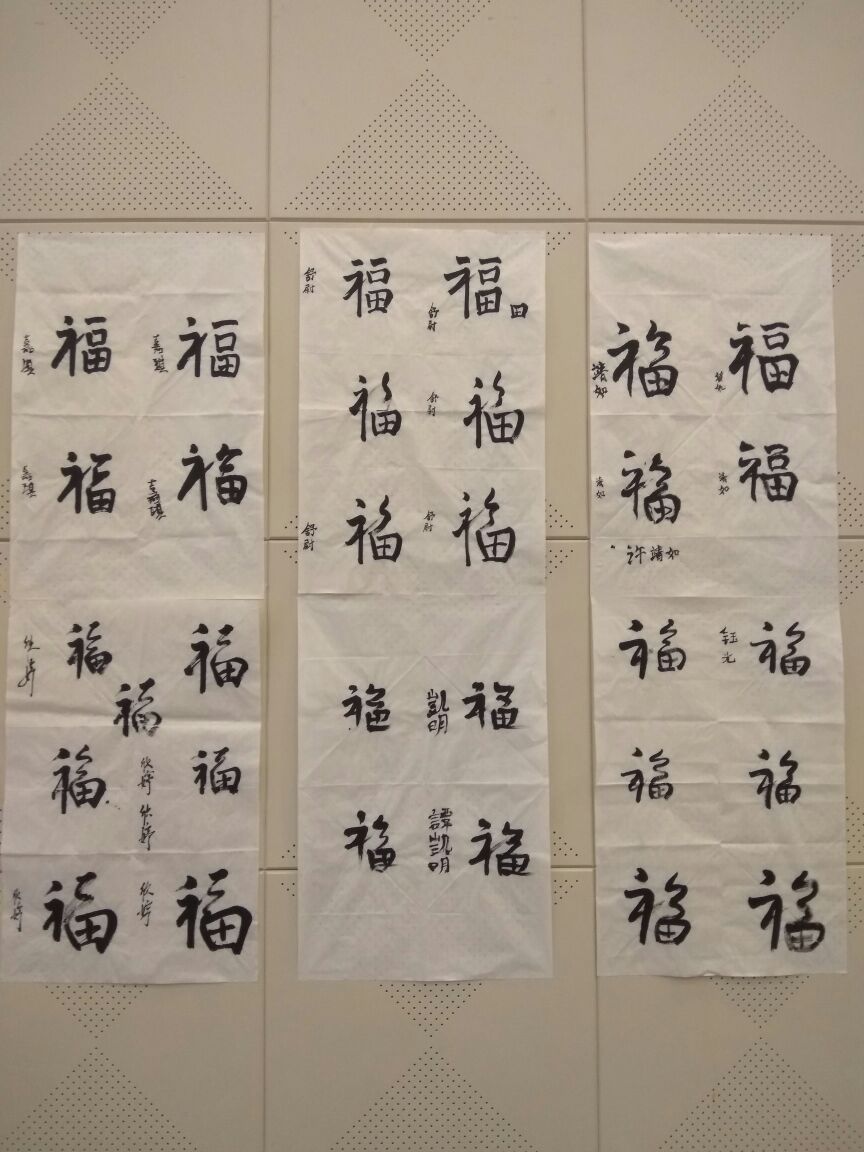 嘉祺 福 嘉祺 福
嘉祺 福 嘉祺 福
福 福
福
福 欣婷 福
欣婷
欣婷 福 欣婷 福
舒尉 福 舒尉 福 四
福 舒尉 福
舒尉 福 舒尉 福
福 凱明 福
福 譚凱明 福
靖如 福 靖如 福
靖如 福 靖如 福
許靖如
福 鈺允 福
福 福
福 福